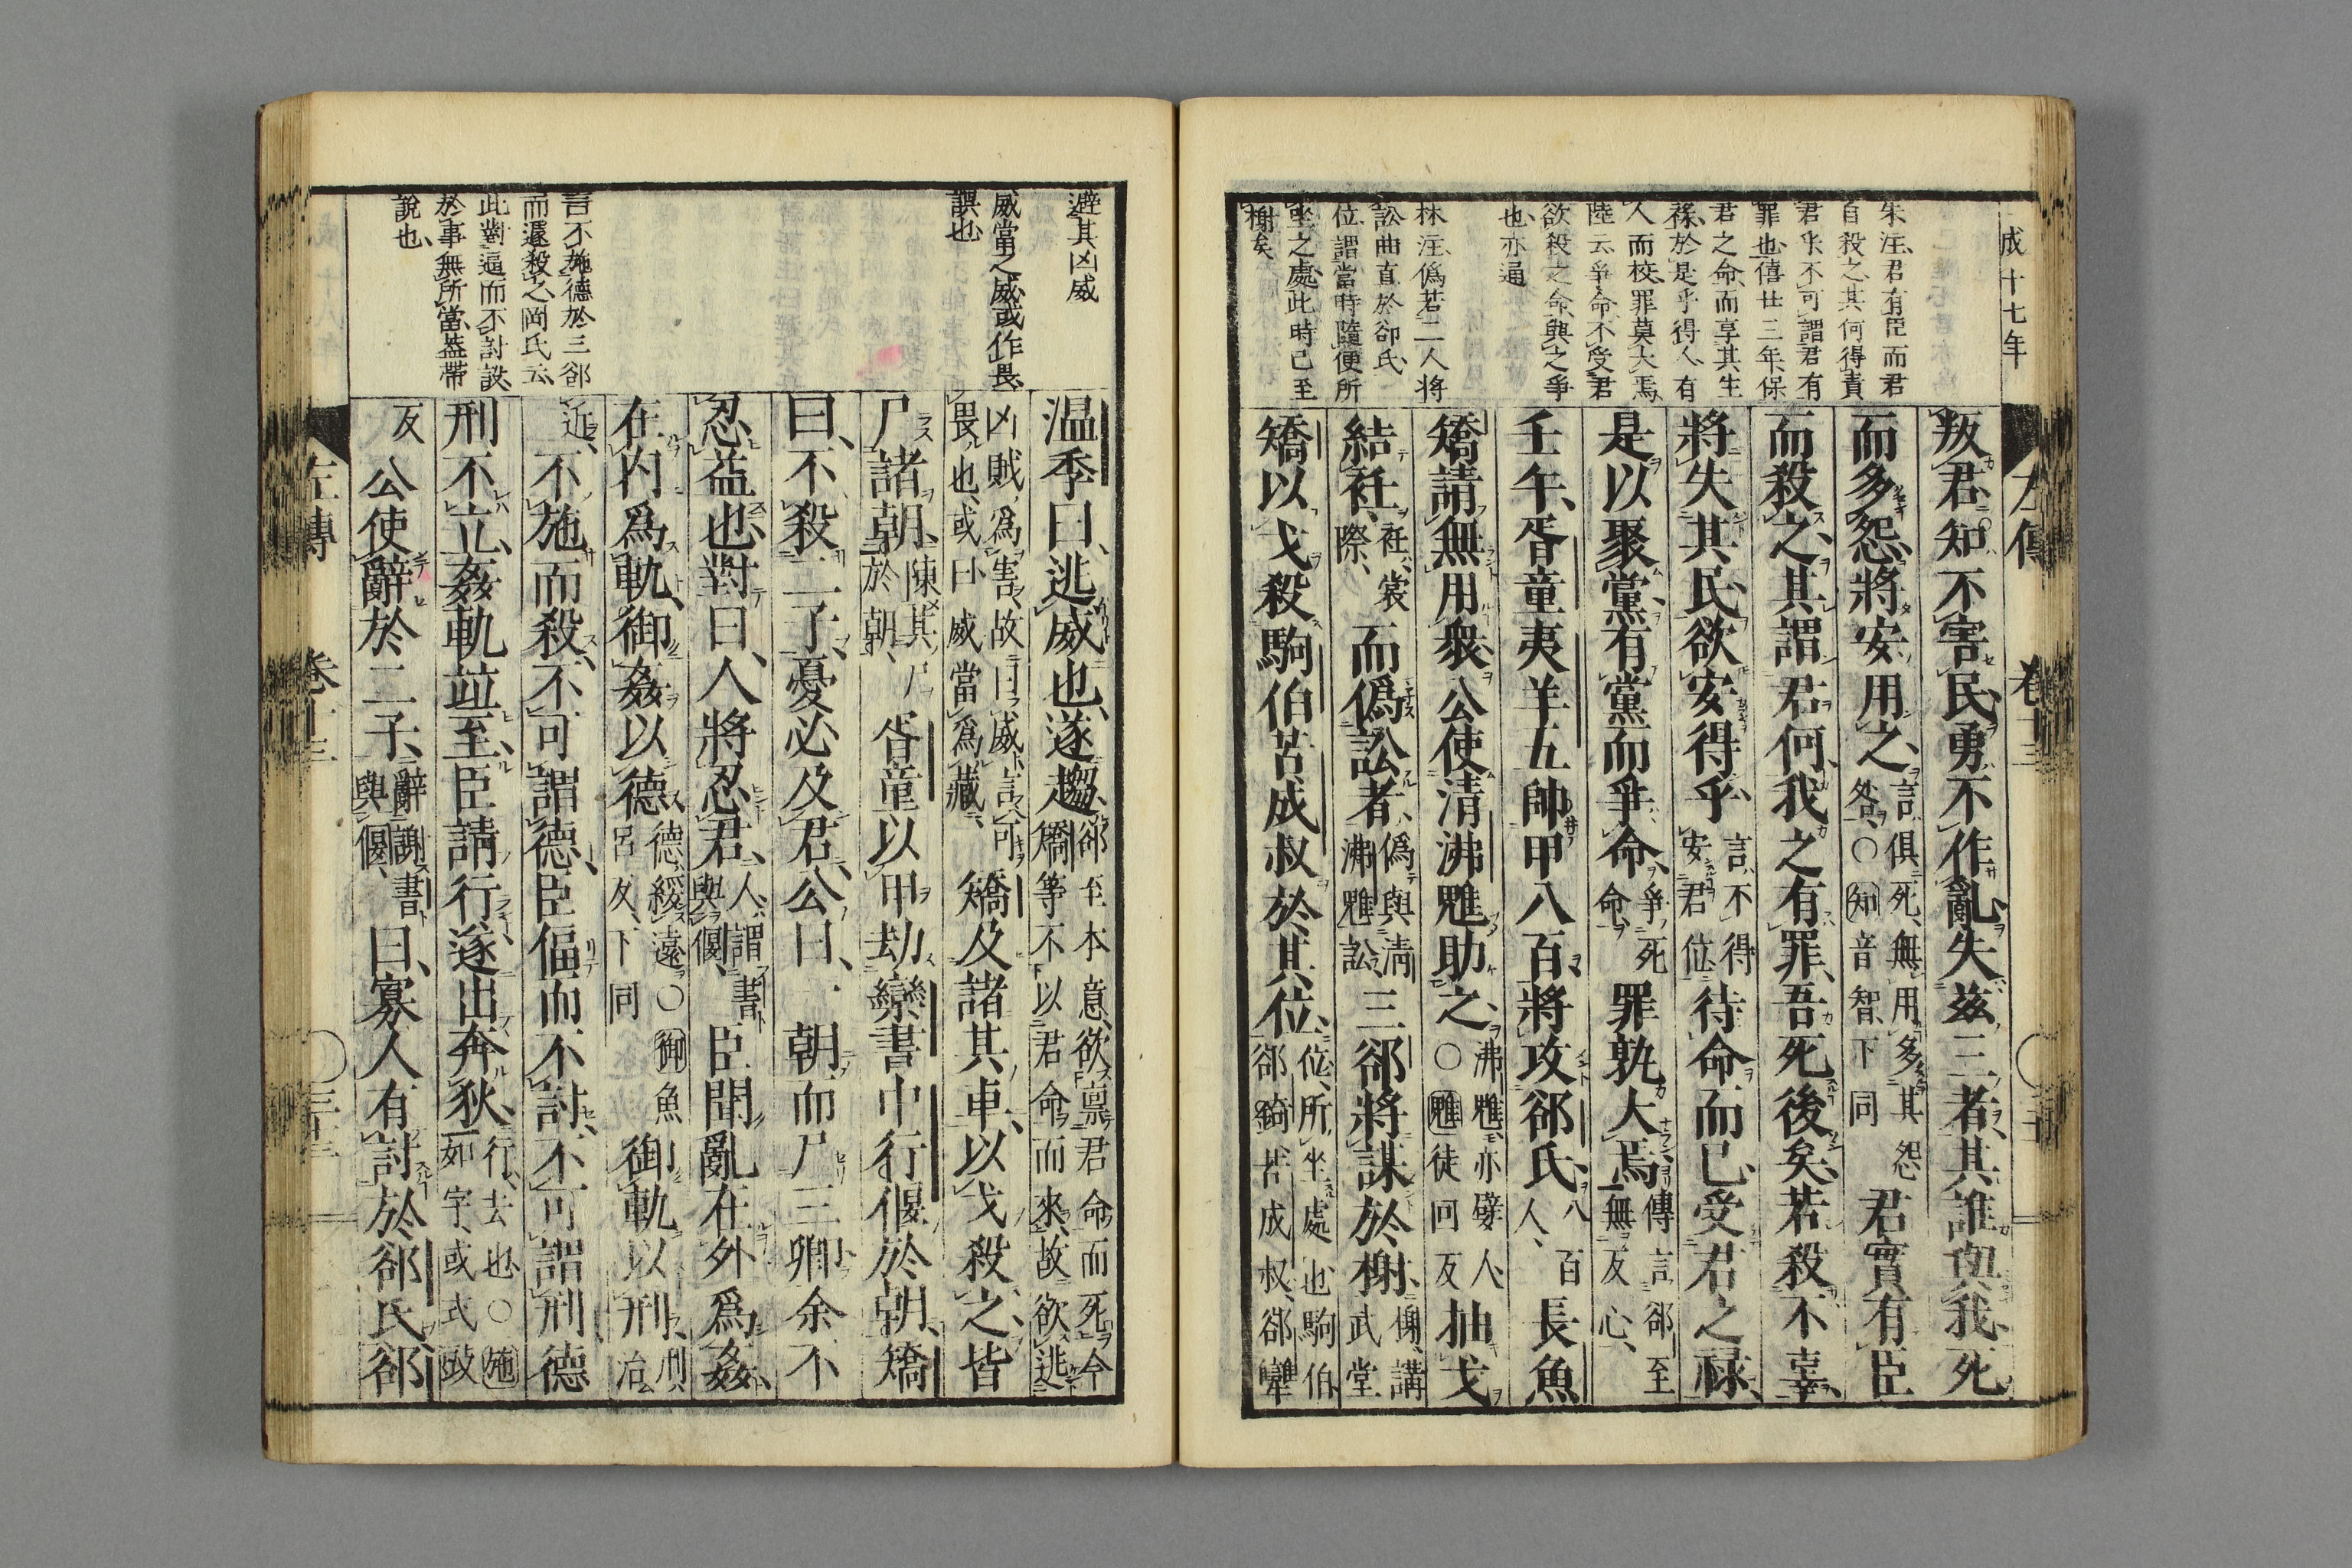 成十七年
朱注、君有臣而君
自殺之、其何得責
君乎、不可謂君有
罪也、僖廿三年、保
君之命、而享其生
祿、於是乎得人、有
人而校、罪莫大焉、
陸云、爭命、不受君
欲殺之命、與之爭
也、亦通
林注、僞若二人將
訟曲直於郤氏、
位謂當時隨便所
坐之處、此時已至
榭矣
叛君、知不害民、勇不作亂、失茲三者、其誰與我、死
而多怨、將安用之、言俱死、無用多其怨
咎、〇知音智、下同
君實有臣
而殺之、其謂君何、我之有罪、吾死後矣、若殺不辜、
將失其民、欲安得乎、言不得
安君位
待命而已、受君之祿、
是以聚黨、有黨而爭命、爭死
命
罪孰大焉、傳言郤至
無反心、
壬午、胥童夷羊五帥甲八百、將攻郤氏、八百
人、
長魚
矯請無用衆、公使清沸魋助之、沸魋亦嬖人、
〇魋徒回反
抽戈
結衽、衽、裳
際、
而僞訟者、僞與清
沸魋訟、
三郤將謀於榭、榭、講
武堂
矯以戈殺駒伯苦成叔於其位、位、所坐處也、駒伯、
郤錡、苦成叔、郤犨
左傳 卷十三
避其凶威
威當之威、或作畏、
誤也
言不施德於三郤
而遽殺之、岡氏云、
此對逼而不討、設
於事無所當、蓋帶
說也、
温季曰、逃威也、遂趨、郤至本意、欲禀君命而死、今
矯等不以君命而來、故欲逃
凶賊爲害、故曰威、言可
畏也、或曰、威當爲藏、
矯及諸其車、以戈殺之、皆
尸諸朝、陳其尸
於朝、
胥童以甲劫欒書中行偃於朝、矯
曰、不殺二子、憂必及君、公曰、一朝而尸三卿、余不
忍益也、對曰、人將忍君、人、謂書
與偃、
臣聞亂在外爲姦、
在内爲軌、御姦以德、德綏遠、〇御魚
呂反、下同
御軌以刑、刑、
治
近、
不施而殺、不可謂德、臣偪而不討、不可謂刑、德
刑不立、姦軌並至、臣請行、遂出奔狄、行、去也、〇施
如字、或式豉
反
公使辭於二子、辭謝書
與偃、
曰、寡人有討於郤氏、郤
左傳 卷十三